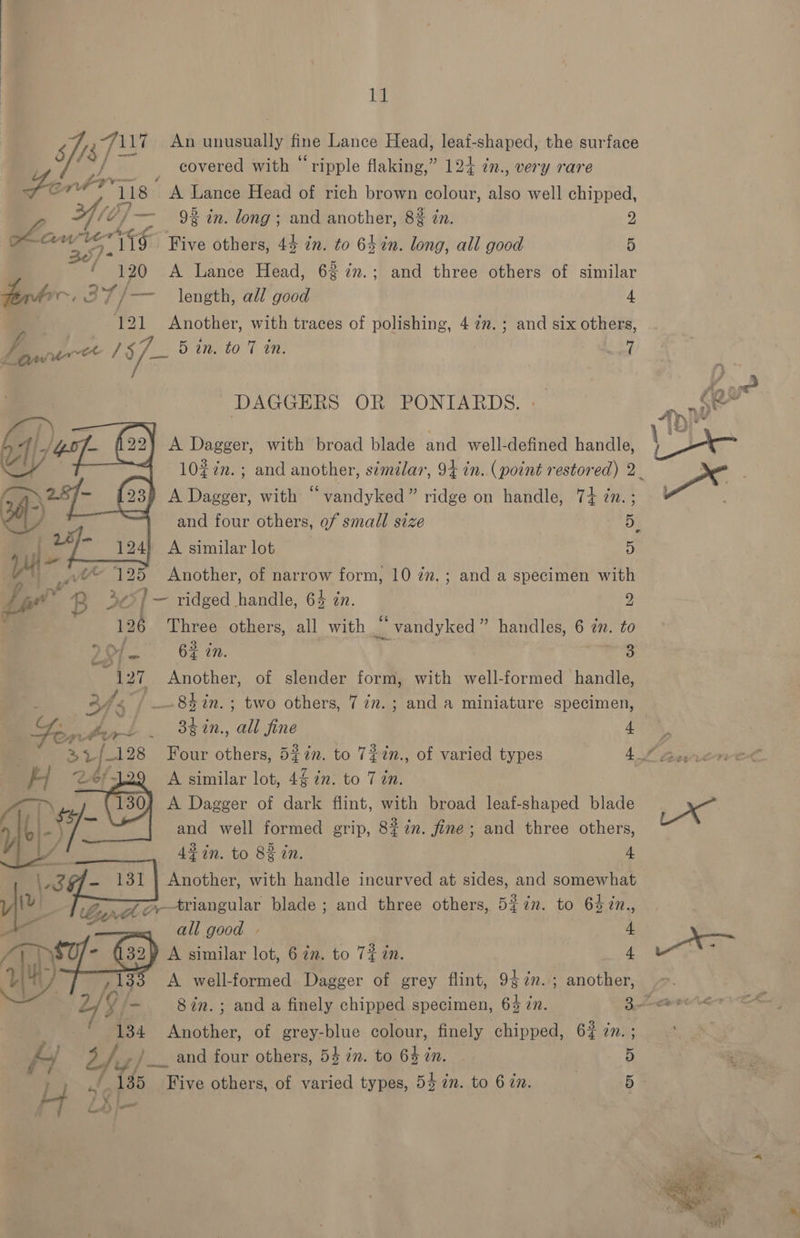 11
117 An unusually fine Lance Head, leaf-shaped, the surface
covered with “ripple flaking,” 12¼ in., very rare
118 A Lance Head of rich brown colour, also well chipped,
9⅜ in. long; and another, 8⅜ in. 2
119 Five others, 4½ in. to 6½ in. long, all good 5
120 A Lance Head, 6⅜ in.; and three others of similar
37/— length, all good 4
121 Another, with traces of polishing, 4 in.; and six others,
5 in. to 7 in. 7
DAGGERS OR PONIARDS.
122 A Dagger, with broad blade and well-defined handle,
10¾ in.; and another, similar, 9¼ in. (point restored) 2
123 A Dagger, with “vandyked” ridge on handle, 7¼ in.;
and four others, of small size 5
124 A similar lot 5
125 Another, of narrow form, 10 in.; and a specimen with
ridged handle, 6½ in. 2
126 Three others, all with “vandyked” handles, 6 in. to
6¾ in. 3
127 Another, of slender form, with well-formed handle,
8½ in.; two others, 7 in.; and a miniature specimen,
3½ in., all fine 4
128 Four others, 5¾ in. to 7¾ in., of varied types 4
129 A similar lot, 4⅝ in. to 7 in.
130 A Dagger of dark flint, with broad leaf-shaped blade
and well formed grip, 8¾ in. fine; and three others,
4¾ in. to 8⅜ in. 4
131 Another, with handle incurved at sides, and somewhat
triangular blade; and three others, 5¾ in. to 6½ in.,
all good 4
132 A similar lot, 6 in. to 7¾ in. 4
133 A well-formed Dagger of grey flint, 9½ in.; another,
8 in.; and a finely chipped specimen, 6½ in. 3
134 Another, of grey-blue colour, finely chipped, 6¾ in.;
and four others, 5½ in. to 6½ in. 5
135 Five others, of varied types, 5½ in. to 6 in. 5